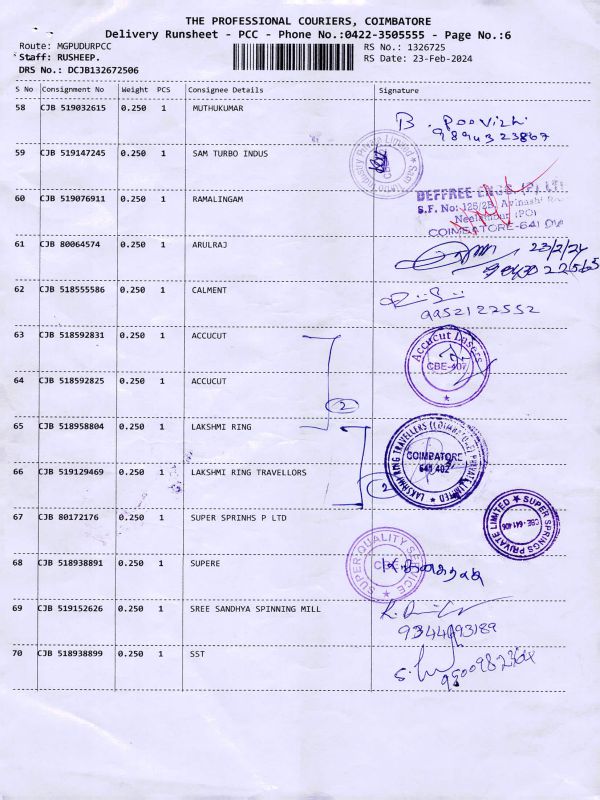 THE PROFESSIONAL COURIERS, COIMBATORE
Delivery Runsheet - PCC - Phone No.:0422-3505555 - Page No.:6
Route: MGPUDURPCC
RS No.: 1326725
Staff: RUSHEEP.
RS Date: 23-Feb-2024
DRS No.: DCJB132672506
S No Consignment No Weight PCS Consignee Details Signature
58 CJB 519032615 0.250 1 MUTHUKUMAR
B. Poovizhi
59 CJB 519147245 0.250 1 SAM TURBO INDUS
60 CJB 519076911 0.250 1 RAMALINGAM
DEFFREE ENGG (P) LTD
S.F. No: 125/2B, Avinashi
Neelambur (PO)
COIMBATORE-641
61 CJB 80064574 0.250 1 ARULRAJ
23/2/24
62 CJB 518555586 0.250 1 CALMENT
9952122552
63 CJB 518592831 0.250 1 ACCUCUT
Accucut Lasers
CBE-407
64 CJB 518592825 0.250 1 ACCUCUT
2
65 CJB 518958804 0.250 1 LAKSHMI RING
LAKSHMI RING TRAVELLERS
COIMBATORE
641 402
66 CJB 519129469 0.250 1 LAKSHMI RING TRAVELLORS
2
67 CJB 80172176 0.250 1 SUPER SPRINHS P LTD
SUPER SPRINGS PRIVATE LIMITED
CBE-641 406
68 CJB 518938891 0.250 1 SUPERE
SUPER-QUALITY SERVICE
69 CJB 519152626 0.250 1 SREE SANDHYA SPINNING MILL
9344693189
70 CJB 518938899 0.250 1 SST